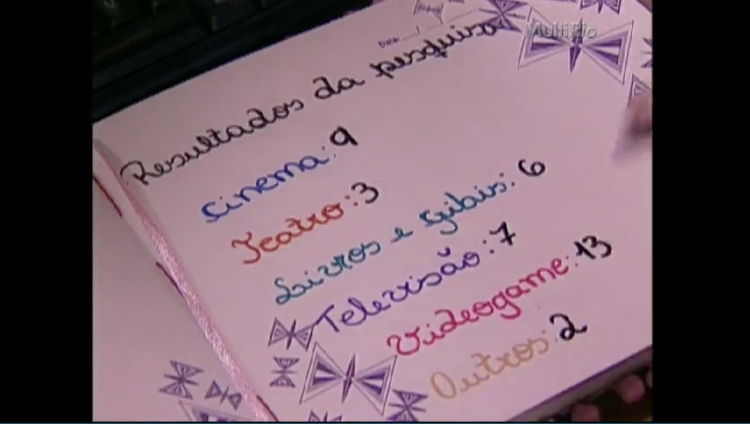 MultiRio
Data: / /
Resultados da pesquisa
Cinema: 9
Teatro: 3
Livros e Gibis: 6
Televisão: 7
Videogame: 13
Outros: 2